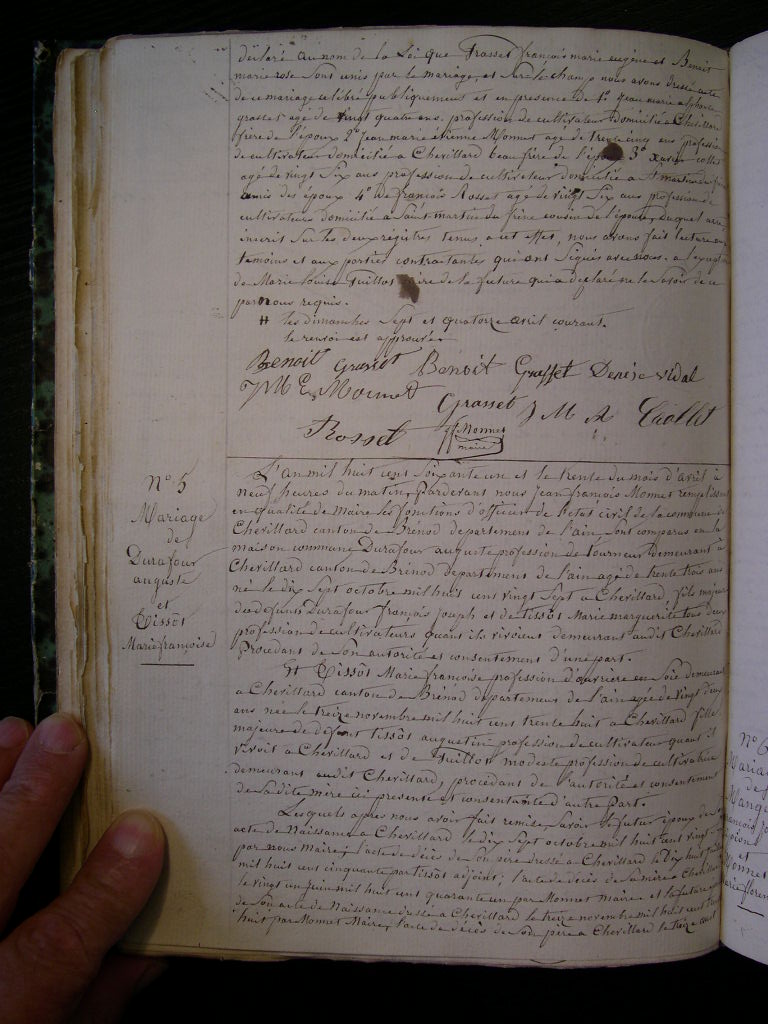 déclaré au nom de la Loi que Grasset françois marie eugène et Benoit
marie rose sont unis par le mariage, et sur le champ nous avons dressé acte
de ce mariage célébré publiquement et en presence de 1° Jean marie alphonse
grasset agé de vingt quatre ans, profession de cultivateur domicilié a Chevillard
frère de l'époux 2° Jean marie étienne Monnet agé de trente cinq ans profession
de cultivateur domicilié a Chevillard beau frère de l'époux 3°
agé de vingt six ans profession de cultivateur domicilié a St martin du frêne
amis des époux 4° et françois Rosset agé de vingt six ans profession de
cultivateur domicilié a Saint martin du frêne cousin de l'épouse, duquel
inscrit sur les deux registres tenus a cet effet, nous avons fait lecture aux
temoins et aux parties contractantes qui ont signés avec nous. a l'exception
de Marie Louise Guillot mère de la future qui a déclaré ne le savoir de ce
par nous requis.
# les dimanches sept et quatorze avril courant.
le renvoi est approuvé.
Benoit grasset Benoit Grasset Denise vidal
J M E Monnet Grasset J M A Criollet
Rosset Monnet
maire
N° 5
Mariage
de
Durafour
auguste
et
Tissôt
Marie françoise
L'an mil huit cent soixante un et le trente du mois d'avril à
neuf heures du matin, Pardevant nous Jean françois Monnet remplissant
en qualité de Maire les fonctions d'officier de l'état civil de la commune de
Chevillard canton de Brénod departement de l'ain, sont comparus en la
maison commune Durafour auguste profession de tourneur demeurant à
Chevillard canton de Brénod departement de l'ain agé de trente trois ans
né le dix sept octobre mil huit cent vingt sept a Chevillard, fils majeur
des défunts Durafour françois Joseph et de tissôt Marie marguerite tous deux
profession de cultivateurs quand ils vivoient demeurant audit Chevillard
Procédant de son autorité et consentement d'une part.
Et Tissôt Marie françoise profession d'ouvrière en soie demeurant
a Chevillard canton de Brénod departement de l'ain agée de vingt deux
ans née le treize novembre mil huit cent trente huit a Chevillard fille
majeure de défunt tissôt augustin profession de cultivateur quand il
vivoit a Chevillard et de Guillot modeste profession de cultivatrice
demeurant audit Chevillard, procédant de l'autorité et consentement
de sa dite mère ici presente et consentante d'autre Part.
Lesquels après nous avoir fait remise, savoir le futur époux de son
acte de Naissance a Chevillard le dix sept octobre mil huit cent vingt
par nous Maire, l'acte de décès de son père dressé a Chevillard le dix huit
mil huit cent cinquante par tissôt adjoint; l'acte de décès de sa mère a Chevillard
le vingt un juin mil huit cent quarante un par Monnet Maire et la future
de son acte de Naissance dressé a Chevillard le treize novembre mil huit cent trente
huit par Monnet Maire, l'acte de décès de son père a Chevillard le treize août
N° 6
Mariage
de
et
Monnet